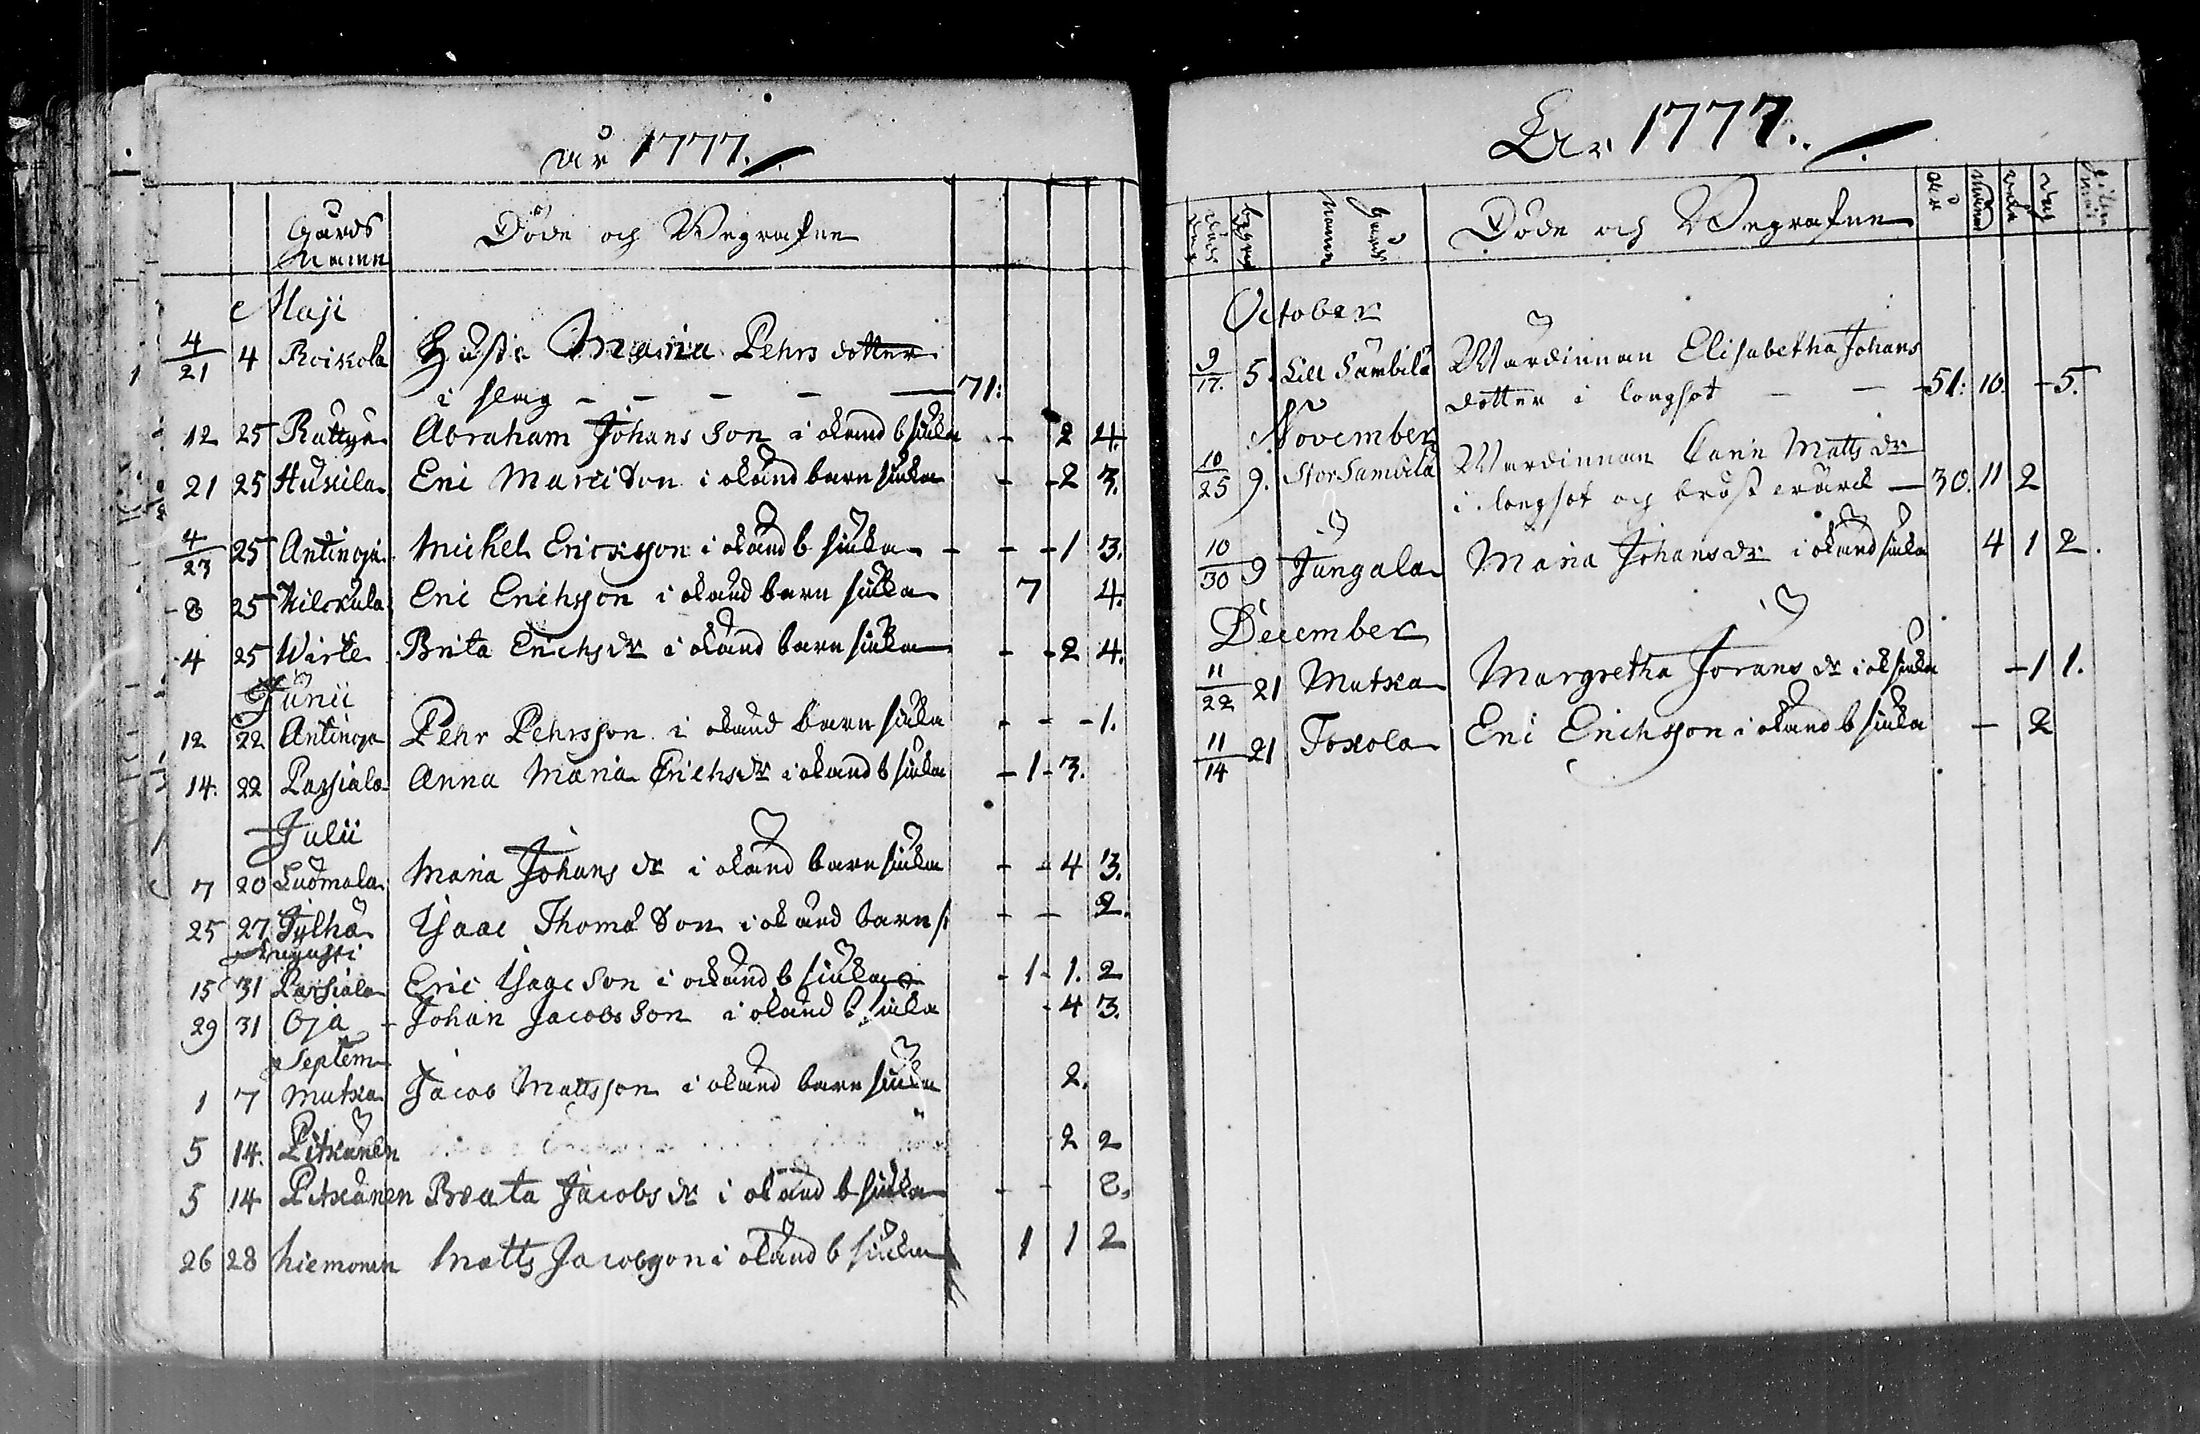 år 1777.
Gårds Namn Döde och Begrafne
Maji
1 4/21 4 Roikola Hustr Maria Pehrs dotter
i slag - - - - 71:
12 25 Ruttya Abraham Johans Son i okänd b siuka - 2 4.
21 25 Husiila Eric Marci Son i okänd barn siuka - - 2 3.
4/23 25 Antinoja Michel Ericksson i okänd b siuka - - - 1 3.
8 25 Kilckula Eric Erichsson i okänd barn siuka 7 4.
4 25 Wirte Brita Erichs dr i okänd barn siuka - - 2 4.
Junii
12 22 Antinoja Pehr Pehrsson i okänd barn siuka - - - 1.
14. 22 Passiala Anna Maria Erichs dr i okänd b siuka - 1 - 3.
Julii
7 20 Luomala Maria Johans dr i okänd barn siuka - - 4 3.
25 27 Jylhä Isaac Thomæ Son i okänd barn s. - - 2.
Augusti
15 31 Passiala Eric Isacson i okänd b siuka - 1 - 1. 2
29 31 Oja - Johan Jacobs Son i okänd b siuka - 4 3.
Septem
1 7 Mutka Jacob Mattsson i okänd barn siuka 2.
5 14. Pitkänen 2 2
5 14 Pitkänen Breata Jacobs dr i okänd b siuka - - 8.
26 28 hiemonen Matts Jacobsson i okänd b siuka 1 1 2
År 1777.
Gårds Namn Döde och Begrafne År Månad Veck Dag
October
9/17. 5. Lill Sämbilä Wärdinnan Elisabetha Johans
dotter i longsot - - 51: 10. - 5.
November
10/25 9. Stor Sämbilä Wärdinnan Carin Matts dr
i longsot och bröst wärck - 30. 11 2
10/30 9 Jungala Maria Johans dr i okänd siuka 4 1 2.
December
11/22 21 Mutka Margretha Jörans dr i ok siuka - 1 1.
11/14 21 Tokola Eric Erichsson i okänd b siuka - 2